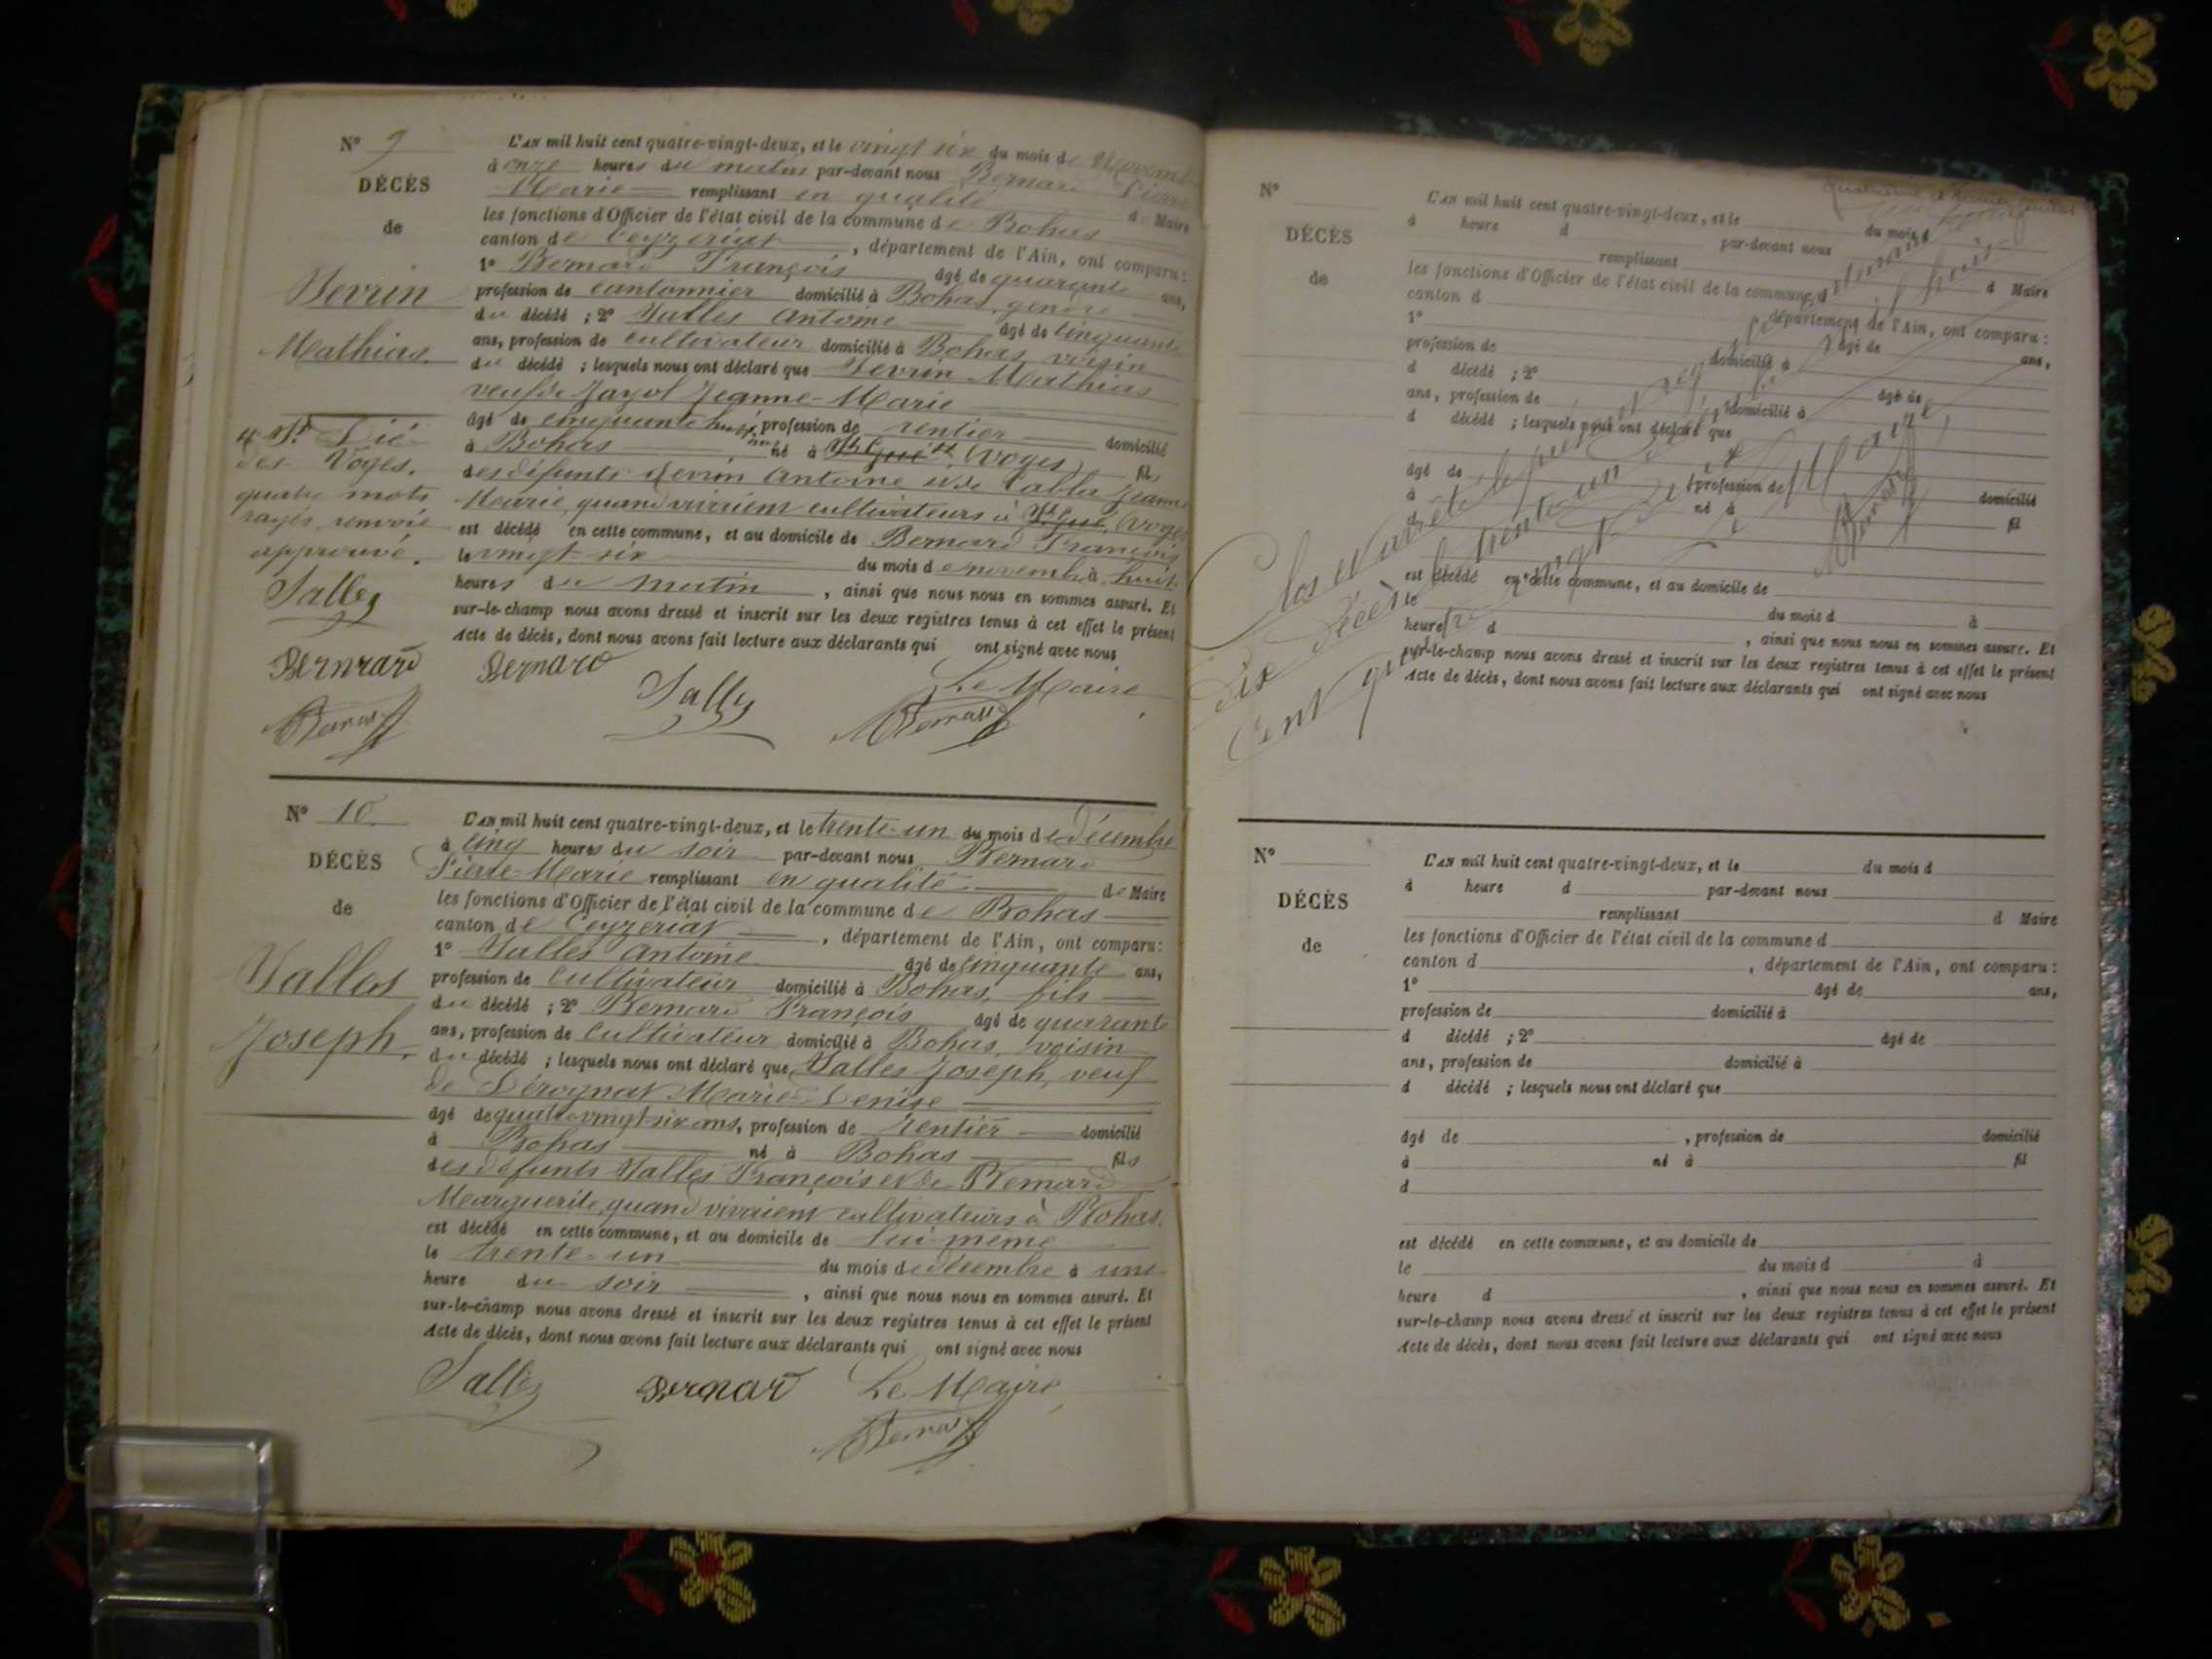 N° 9
DÉCÈS
de
Sevrin
Mathias.
L'AN mil huit cent quatre-vingt-deux, et le vingt six du mois de Novembre
à onze heures du matin par-devant nous Bernard Pierre
Marie remplissant en qualité de Maire
les fonctions d'Officier de l'état civil de la commune de Bohas
canton de Ceyzeriat, département de l'Ain, ont comparu :
1° Bernard François âgé de quarante ans,
profession de cantonnier domicilié à Bohas, gendre
du décédé ; 2° Salles Antoine âgé de cinquante
ans, profession de cultivateur domicilié à Bohas, voisin
du décédé ; lesquels nous ont déclaré que Sevrin Mathias
veuf de Jeanne-Marie
âgé de cinquante huit profession de rentier domicilié
à Bohas né à (Voges) fils
des défunts Sevrin Antoine et de Jeanne
Marie, quand vivaient cultivateurs à (Voges)
est décédé en cette commune, et au domicile de Bernard François
le vingt-six du mois de novembre à huit
heures du matin, ainsi que nous nous en sommes assuré. Et
sur-le-champ nous avons dressé et inscrit sur les deux registres tenus à cet effet le présent
Acte de décès, dont nous avons fait lecture aux déclarants qui ont signé avec nous
St Dié
des Voges.
quatre mots
rayés, renvoie
approuvé.
Salles
Bernrard
Bernard
Bernard
Sally
Le Maire
Bernard
N° 10
DÉCÈS
de
Salles
Joseph.
L'AN mil huit cent quatre-vingt-deux, et le trente-un du mois de Décembre
à cinq heures du soir par-devant nous Bernard
Pierre-Marie remplissant en qualité de Maire
les fonctions d'Officier de l'état civil de la commune de Bohas
canton de Ceyzeriat, département de l'Ain, ont comparu :
1° Salles Antoine âgé de cinquante ans,
profession de Cultivateur domicilié à Bohas, fils
du décédé ; 2° Bernard François âgé de quarante
ans, profession de Cultivateur domicilié à Bohas, voisin
du décédé ; lesquels nous ont déclaré que Salles Joseph, veuf
de Dérognat Marie-Denise
âgé de quatre-vingt-six ans, profession de rentier domicilié
à Bohas né à Bohas fils
des défunts Salles François et de Bernard
Marguerite, quand vivaient cultivateurs à Bohas.
est décédé en cette commune, et au domicile de lui-même
le trente-un du mois de décembre à une
heure du soir, ainsi que nous nous en sommes assuré. Et
sur-le-champ nous avons dressé et inscrit sur les deux registres tenus à cet effet le présent
Acte de décès, dont nous avons fait lecture aux déclarants qui ont signé avec nous
Salles
Bernard
Le Maire,
Bernard
N°
DÉCÈS
de
L'AN mil huit cent quatre-vingt-deux, et le du mois d
à heure d par-devant nous
remplissant d Maire
les fonctions d'Officier de l'état civil de la commune d
canton d département de l'Ain, ont comparu :
1° âgé de ans,
profession de domicilié à
d décédé ; 2° âgé de
ans, profession de domicilié à
d décédé ; lesquels nous ont déclaré que
âgé de , profession de domicilié
à né à fil
est décédé en cette commune, et au domicile de
le du mois d à
heure d , ainsi que nous nous en sommes assuré. Et
sur-le-champ nous avons dressé et inscrit sur les deux registres tenus à cet effet le présent
Acte de décès, dont nous avons fait lecture aux déclarants qui ont signé avec nous
Clos et arrêté le
dix décès le trente un
cent
Le Maire,
Bernard
N°
DÉCÈS
de
L'AN mil huit cent quatre-vingt-deux, et le du mois d
à heure d par-devant nous
remplissant d Maire
les fonctions d'Officier de l'état civil de la commune d
canton d , département de l'Ain, ont comparu :
1° âgé de ans,
profession de domicilié à
d décédé ; 2° âgé de
ans, profession de domicilié à
d décédé ; lesquels nous ont déclaré que
âgé de , profession de domicilié
à né à fil
d
est décédé en cette commune, et au domicile de
le du mois d à
heure d , ainsi que nous nous en sommes assuré. Et
sur-le-champ nous avons dressé et inscrit sur les deux registres tenus à cet effet le présent
Acte de décès, dont nous avons fait lecture aux déclarants qui ont signé avec nous